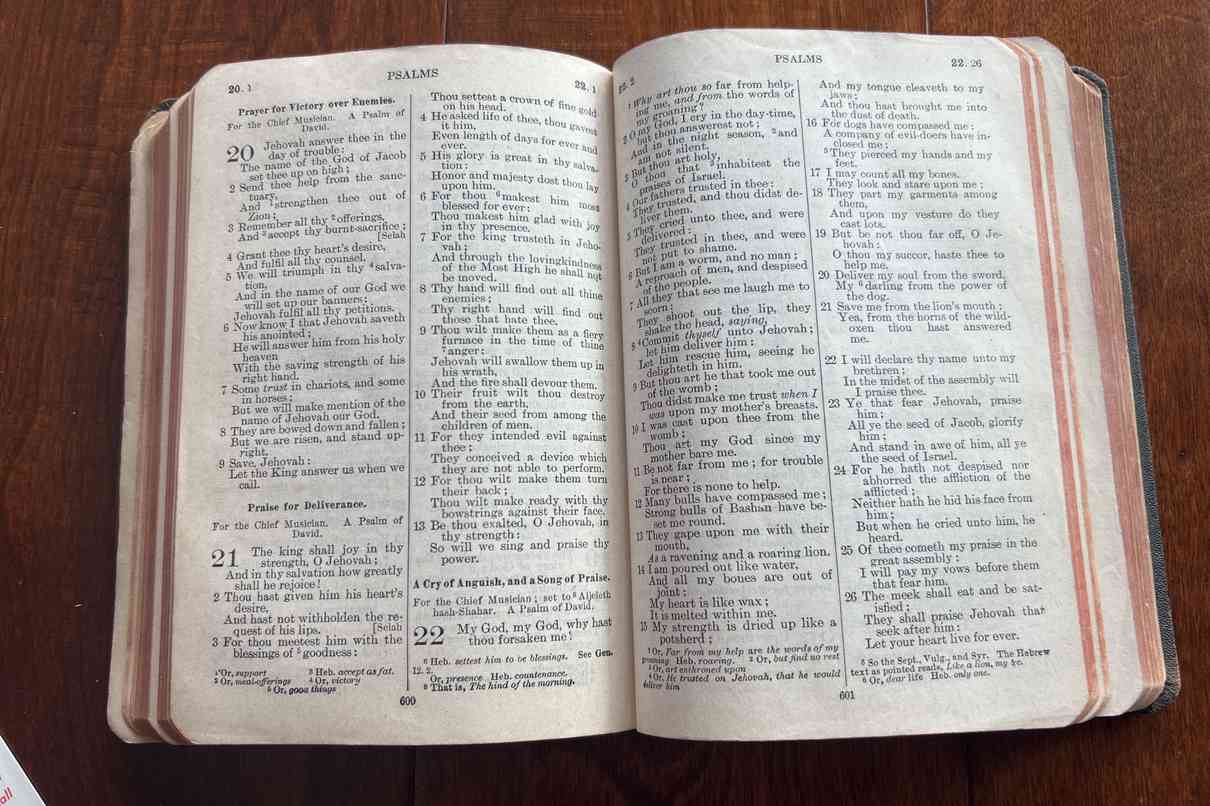 20. 1
PSALMS
22. 1
Prayer for Victory over Enemies.
For the Chief Musician. A Psalm of
David.
20 Jehovah answer thee in the
day of trouble:
The name of the God of Jacob
set thee up on high;
2 Send thee help from the sanc-
tuary,
And ¹strengthen thee out of
Zion;
3 Remember all thy ²offerings,
And ³accept thy burnt-sacrifice;
[Selah
4 Grant thee thy heart's desire,
And fulfil all thy counsel.
5 We will triumph in thy ⁴salva-
tion,
And in the name of our God we
will set up our banners:
Jehovah fulfil all thy petitions.
6 Now know I that Jehovah saveth
his anointed;
He will answer him from his holy
heaven
With the saving strength of his
right hand.
7 Some trust in chariots, and some
in horses;
But we will make mention of the
name of Jehovah our God.
8 They are bowed down and fallen;
But we are risen, and stand up-
right.
9 Save, Jehovah:
Let the King answer us when we
call.
Praise for Deliverance.
For the Chief Musician. A Psalm of
David.
21 The king shall joy in thy
strength, O Jehovah;
And in thy salvation how greatly
shall he rejoice!
2 Thou hast given him his heart's
desire,
And hast not withholden the re-
quest of his lips. [Selah
3 For thou meetest him with the
blessings of ⁵goodness:
¹Or, support ³ Heb. accept as fat.
² Or, meal-offerings ⁴ Or, victory
⁵ Or, good things
Thou settest a crown of fine gold
on his head.
4 He asked life of thee, thou gavest
it him,
Even length of days for ever and
ever.
5 His glory is great in thy salva-
tion:
Honor and majesty dost thou lay
upon him.
6 For thou ⁶makest him most
blessed for ever:
Thou makest him glad with joy
in thy presence.
7 For the king trusteth in Jeho-
vah;
And through the lovingkindness
of the Most High he shall not
be moved.
8 Thy hand will find out all thine
enemies;
Thy right hand will find out
those that hate thee.
9 Thou wilt make them as a fiery
furnace in the time of thine
⁷anger:
Jehovah will swallow them up in
his wrath,
And the fire shall devour them.
10 Their fruit wilt thou destroy
from the earth,
And their seed from among the
children of men.
11 For they intended evil against
thee;
They conceived a device which
they are not able to perform.
12 For thou wilt make them turn
their back;
Thou wilt make ready with thy
bowstrings against their face.
13 Be thou exalted, O Jehovah, in
thy strength:
So will we sing and praise thy
power.
A Cry of Anguish, and a Song of Praise.
For the Chief Musician; set to ⁸ Aijeleth
hash-Shahar. A Psalm of David.
22 My God, my God, why hast
thou forsaken me!
⁶ Heb. settest him to be blessings. See Gen.
12. 2.
Or, presence Heb. countenance.
⁸ That is, The hind of the morning.
600
22. 2
PSALMS
22. 26
¹ Why art thou so far from help-
ing me, and from the words of
my groaning?
2 O my God, I cry in the day-time,
but thou answerest not;
And in the night season, ²and
am not silent.
3 But thou art holy,
O thou that ³inhabitest the
praises of Israel.
4 Our fathers trusted in thee:
They trusted, and thou didst de-
liver them.
5 They cried unto thee, and were
delivered:
They trusted in thee, and were
not put to shame.
6 But I am a worm, and no man;
A reproach of men, and despised
of the people.
7 All they that see me laugh me to
scorn:
They shoot out the lip, they
shake the head, saying,
8 ⁴Commit thyself unto Jehovah;
let him deliver him:
Let him rescue him, seeing he
delighteth in him.
9 But thou art he that took me out
of the womb;
Thou didst make me trust when I
was upon my mother's breasts.
10 I was cast upon thee from the
womb;
Thou art my God since my
mother bare me.
11 Be not far from me; for trouble
is near;
For there is none to help.
12 Many bulls have compassed me;
Strong bulls of Bashan have be-
set me round.
13 They gape upon me with their
mouth,
As a ravening and a roaring lion.
14 I am poured out like water,
And all my bones are out of
joint:
My heart is like wax;
It is melted within me.
15 My strength is dried up like a
potsherd;
¹ Or, Far from my help are the words of my
groaning Heb. roaring. ² Or, but find no rest
³ Or, art enthroned upon
⁴ Or, He trusted on Jehovah, that he would
deliver him
And my tongue cleaveth to my
jaws;
And thou hast brought me into
the dust of death.
16 For dogs have compassed me:
A company of evil-doers have in-
closed me;
⁵They pierced my hands and my
feet.
17 I may count all my bones.
They look and stare upon me;
18 They part my garments among
them,
And upon my vesture do they
cast lots.
19 But be not thou far off, O Je-
hovah:
O thou my succor, haste thee to
help me.
20 Deliver my soul from the sword,
My ⁶ darling from the power of
the dog.
21 Save me from the lion's mouth;
Yea, from the horns of the wild-
oxen thou hast answered
me.
22 I will declare thy name unto my
brethren;
In the midst of the assembly will
I praise thee.
23 Ye that fear Jehovah, praise
him;
All ye the seed of Jacob, glorify
him;
And stand in awe of him, all ye
the seed of Israel.
24 For he hath not despised nor
abhorred the affliction of the
afflicted;
Neither hath he hid his face from
him;
But when he cried unto him, he
heard.
25 Of thee cometh my praise in the
great assembly:
I will pay my vows before them
that fear him.
26 The meek shall eat and be sat-
isfied;
They shall praise Jehovah that
seek after him:
Let your heart live for ever.
⁵ So the Sept., Vulg., and Syr. The Hebrew
text as pointed reads, Like a lion, my &c.
⁶ Or, dear life Heb. only one.
601
all